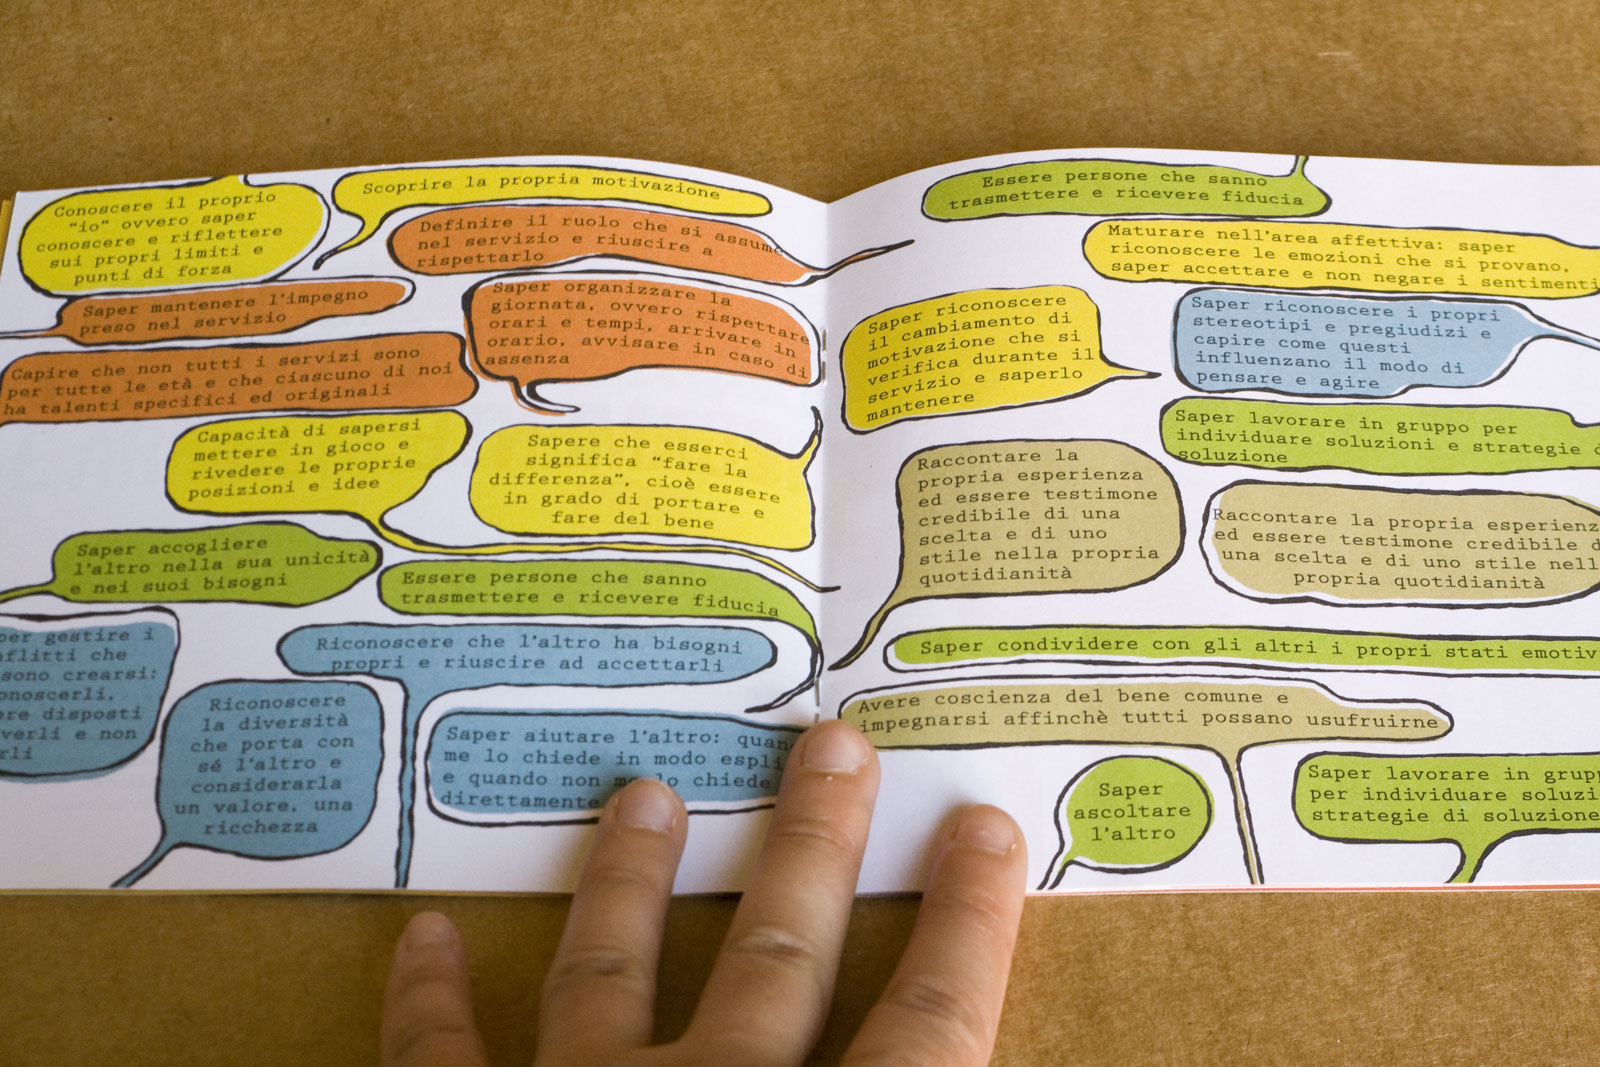 Conoscere il proprio
"io" ovvero saper
conoscere e riflettere
sui propri limiti e
punti di forza
Scoprire la propria motivazione
Definire il ruolo che si assume
nel servizio e riuscire a
rispettarlo
Saper mantenere l'impegno
preso nel servizio
Saper organizzare la
giornata, ovvero rispettare
orari e tempi, arrivare in
orario, avvisare in caso di
assenza
Capire che non tutti i servizi sono
per tutte le età e che ciascuno di noi
ha talenti specifici ed originali
Capacità di sapersi
mettere in gioco e
rivedere le proprie
posizioni e idee
Sapere che esserci
significa "fare la
differenza", cioè essere
in grado di portare e
fare del bene
Saper accogliere
l'altro nella sua unicità
e nei suoi bisogni
Essere persone che sanno
trasmettere e ricevere fiducia
gestire i
che
sono crearsi:
disposti
e non
Riconoscere che l'altro ha bisogni
propri e riuscire ad accettarli
Riconoscere
la diversità
che porta con
sé l'altro e
considerarla
un valore, una
ricchezza
Saper aiutare l'altro:
me lo chiede in modo
e quando non me lo chiede
direttamente
Essere persone che sanno
trasmettere e ricevere fiducia
Maturare nell'area affettiva: saper
riconoscere le emozioni che si provano,
saper accettare e non negare i sentimenti
Saper riconoscere
il cambiamento di
motivazione che si
verifica durante il
servizio e saperlo
mantenere
Saper riconoscere i propri
stereotipi e pregiudizi e
capire come questi
influenzano il modo di
pensare e agire
Saper lavorare in gruppo per
individuare soluzioni e strategie
soluzione
Raccontare la
propria esperienza
ed essere testimone
credibile di una
scelta e di uno
stile nella propria
quotidianità
Raccontare la propria
ed essere testimone credibile
una scelta e di uno stile
propria quotidianità
Saper condividere con gli altri i propri stati
Avere coscienza del bene comune e
impegnarsi affinchè tutti possano usufruirne
Saper
ascoltare
l'altro
Saper lavorare in
per individuare
strategie di soluzione